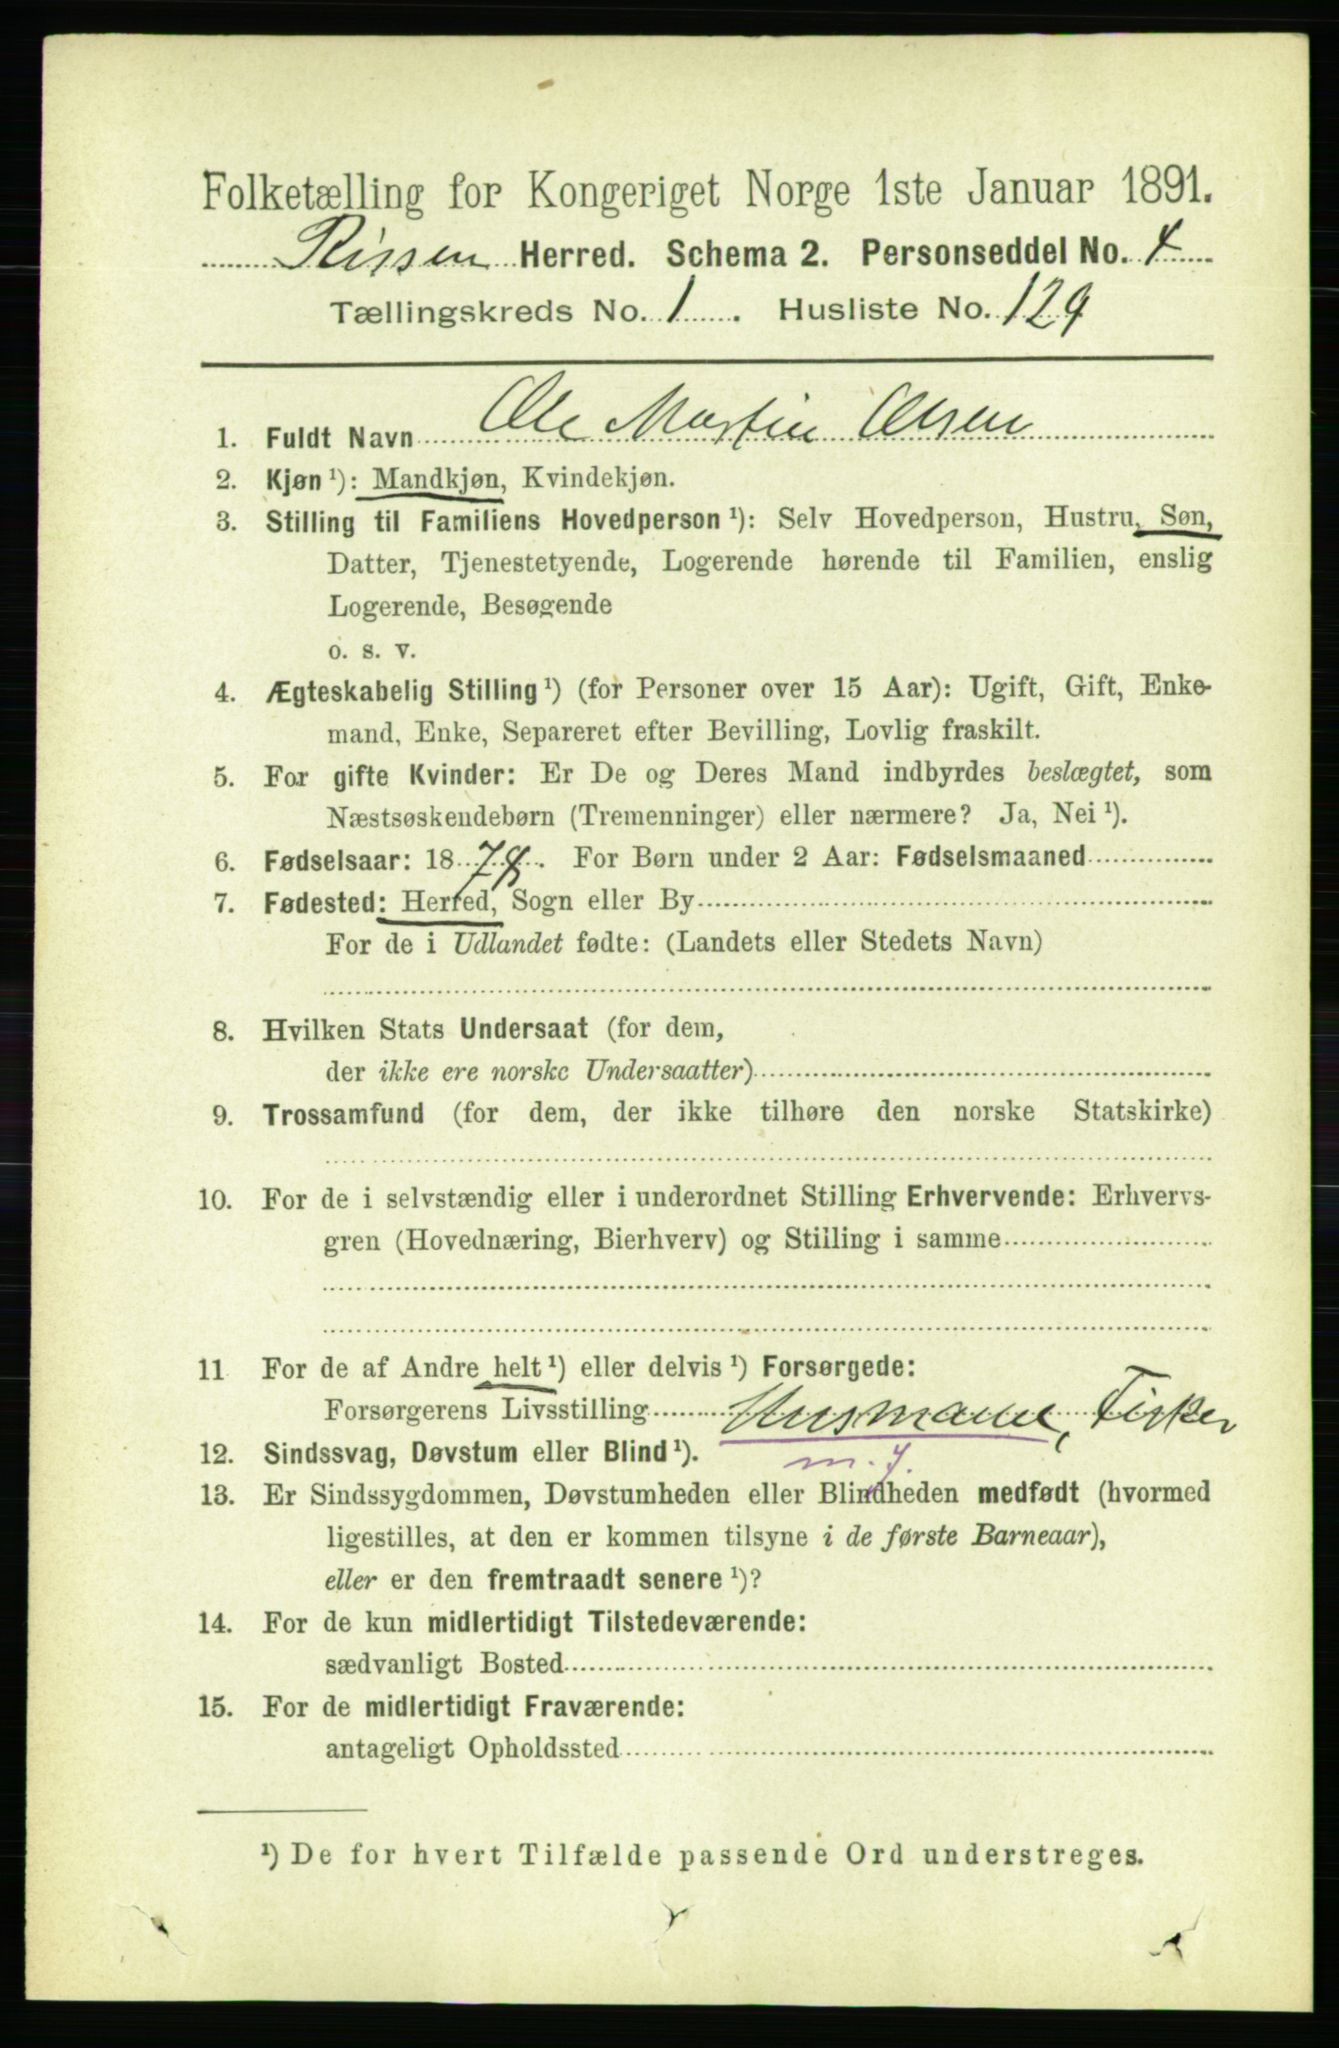 Folketælling for Kongeriget Norge 1ste Januar 1891.
Rissen Herred. Schema 2. Personseddel No. 4
Tællingskreds No. 1. Husliste No. 129
1. Fuldt Navn Ole Martin Olsen
2. Kjøn ¹): Mandkjøn, Kvindekjøn.
3. Stilling til Familiens Hovedperson ¹): Selv Hovedperson, Hustru, Søn,
Datter, Tjenestetyende, Logerende hørende til Familien, enslig
Logerende, Besøgende
o. s. v.
4. Ægteskabelig Stilling ¹) (for Personer over 15 Aar): Ugift, Gift, Enke-
mand, Enke, Separeret efter Bevilling, Lovlig fraskilt.
5. For gifte Kvinder: Er De og Deres Mand indbyrdes beslægtet, som
Næstsøskendebørn (Tremenninger) eller nærmere? Ja, Nei ¹).
6. Fødselsaar: 1878. For Børn under 2 Aar: Fødselsmaaned
7. Fødested: Herred, Sogn eller By
For de i Udlandet fødte: (Landets eller Stedets Navn)
8. Hvilken Stats Undersaat (for dem,
der ikke ere norske Undersaatter)
9. Trossamfund (for dem, der ikke tilhøre den norske Statskirke)
10. For de i selvstændig eller i underordnet Stilling Erhvervende: Erhvervs-
gren (Hovednæring, Bierhverv) og Stilling i samme
11 For de af Andre helt ¹) eller delvis ¹) Forsørgede:
Forsørgerens Livsstilling Husmand, Fisker
12. Sindssvag, Døvstum eller Blind ¹). m. J.
13. Er Sindssygdommen, Døvstumheden eller Blindheden medfødt (hvormed
ligestilles, at den er kommen tilsyne i de første Barneaar),
eller er den fremtraadt senere ¹)?
14. For de kun midlertidigt Tilstedeværende:
sædvanligt Bosted
15. For de midlertidigt Fraværende:
antageligt Opholdssted
¹) De for hvert Tilfælde passende Ord understreges.